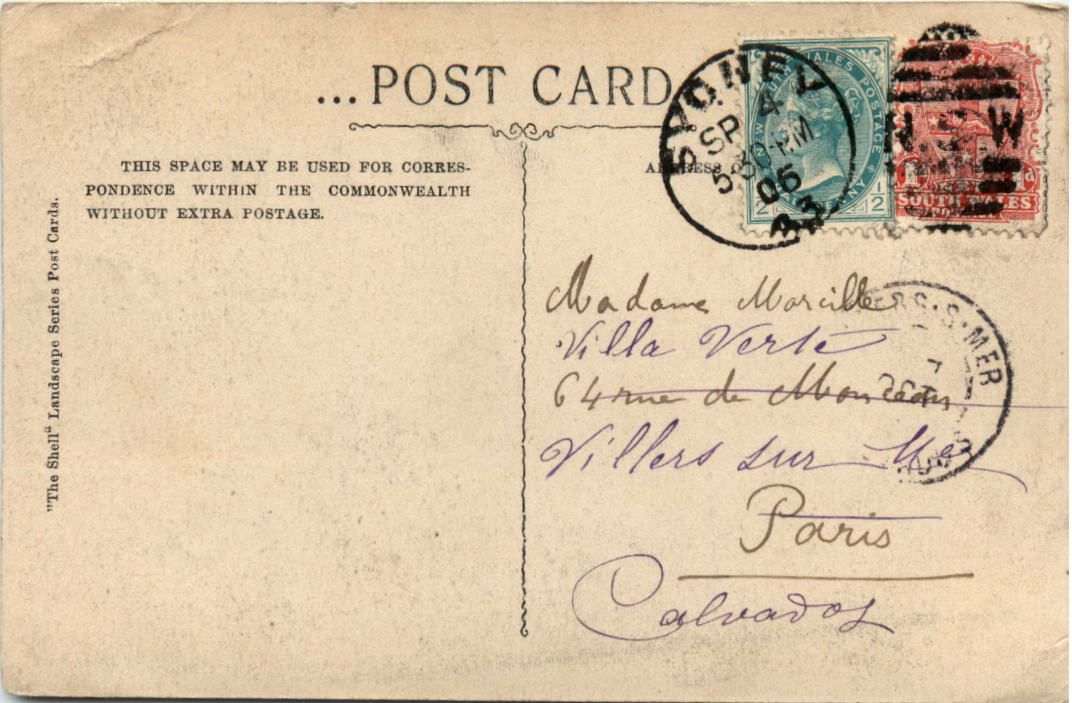 ... POST CARD
THIS SPACE MAY BE USED FOR CORRES-
PONDENCE WITHIN THE COMMONWEALTH
WITHOUT EXTRA POSTAGE.
"The Shell" Landscape Series Post Cards.
SYDNEY
SP 4
5 30 PM
06
NEW SOUTH WALES POSTAGE
N.S.W
SOUTH WALES
S·MER
Madame Marcille
Villa Verte
64 rue de Monceau
Villers sur Mer
Paris
Calvados